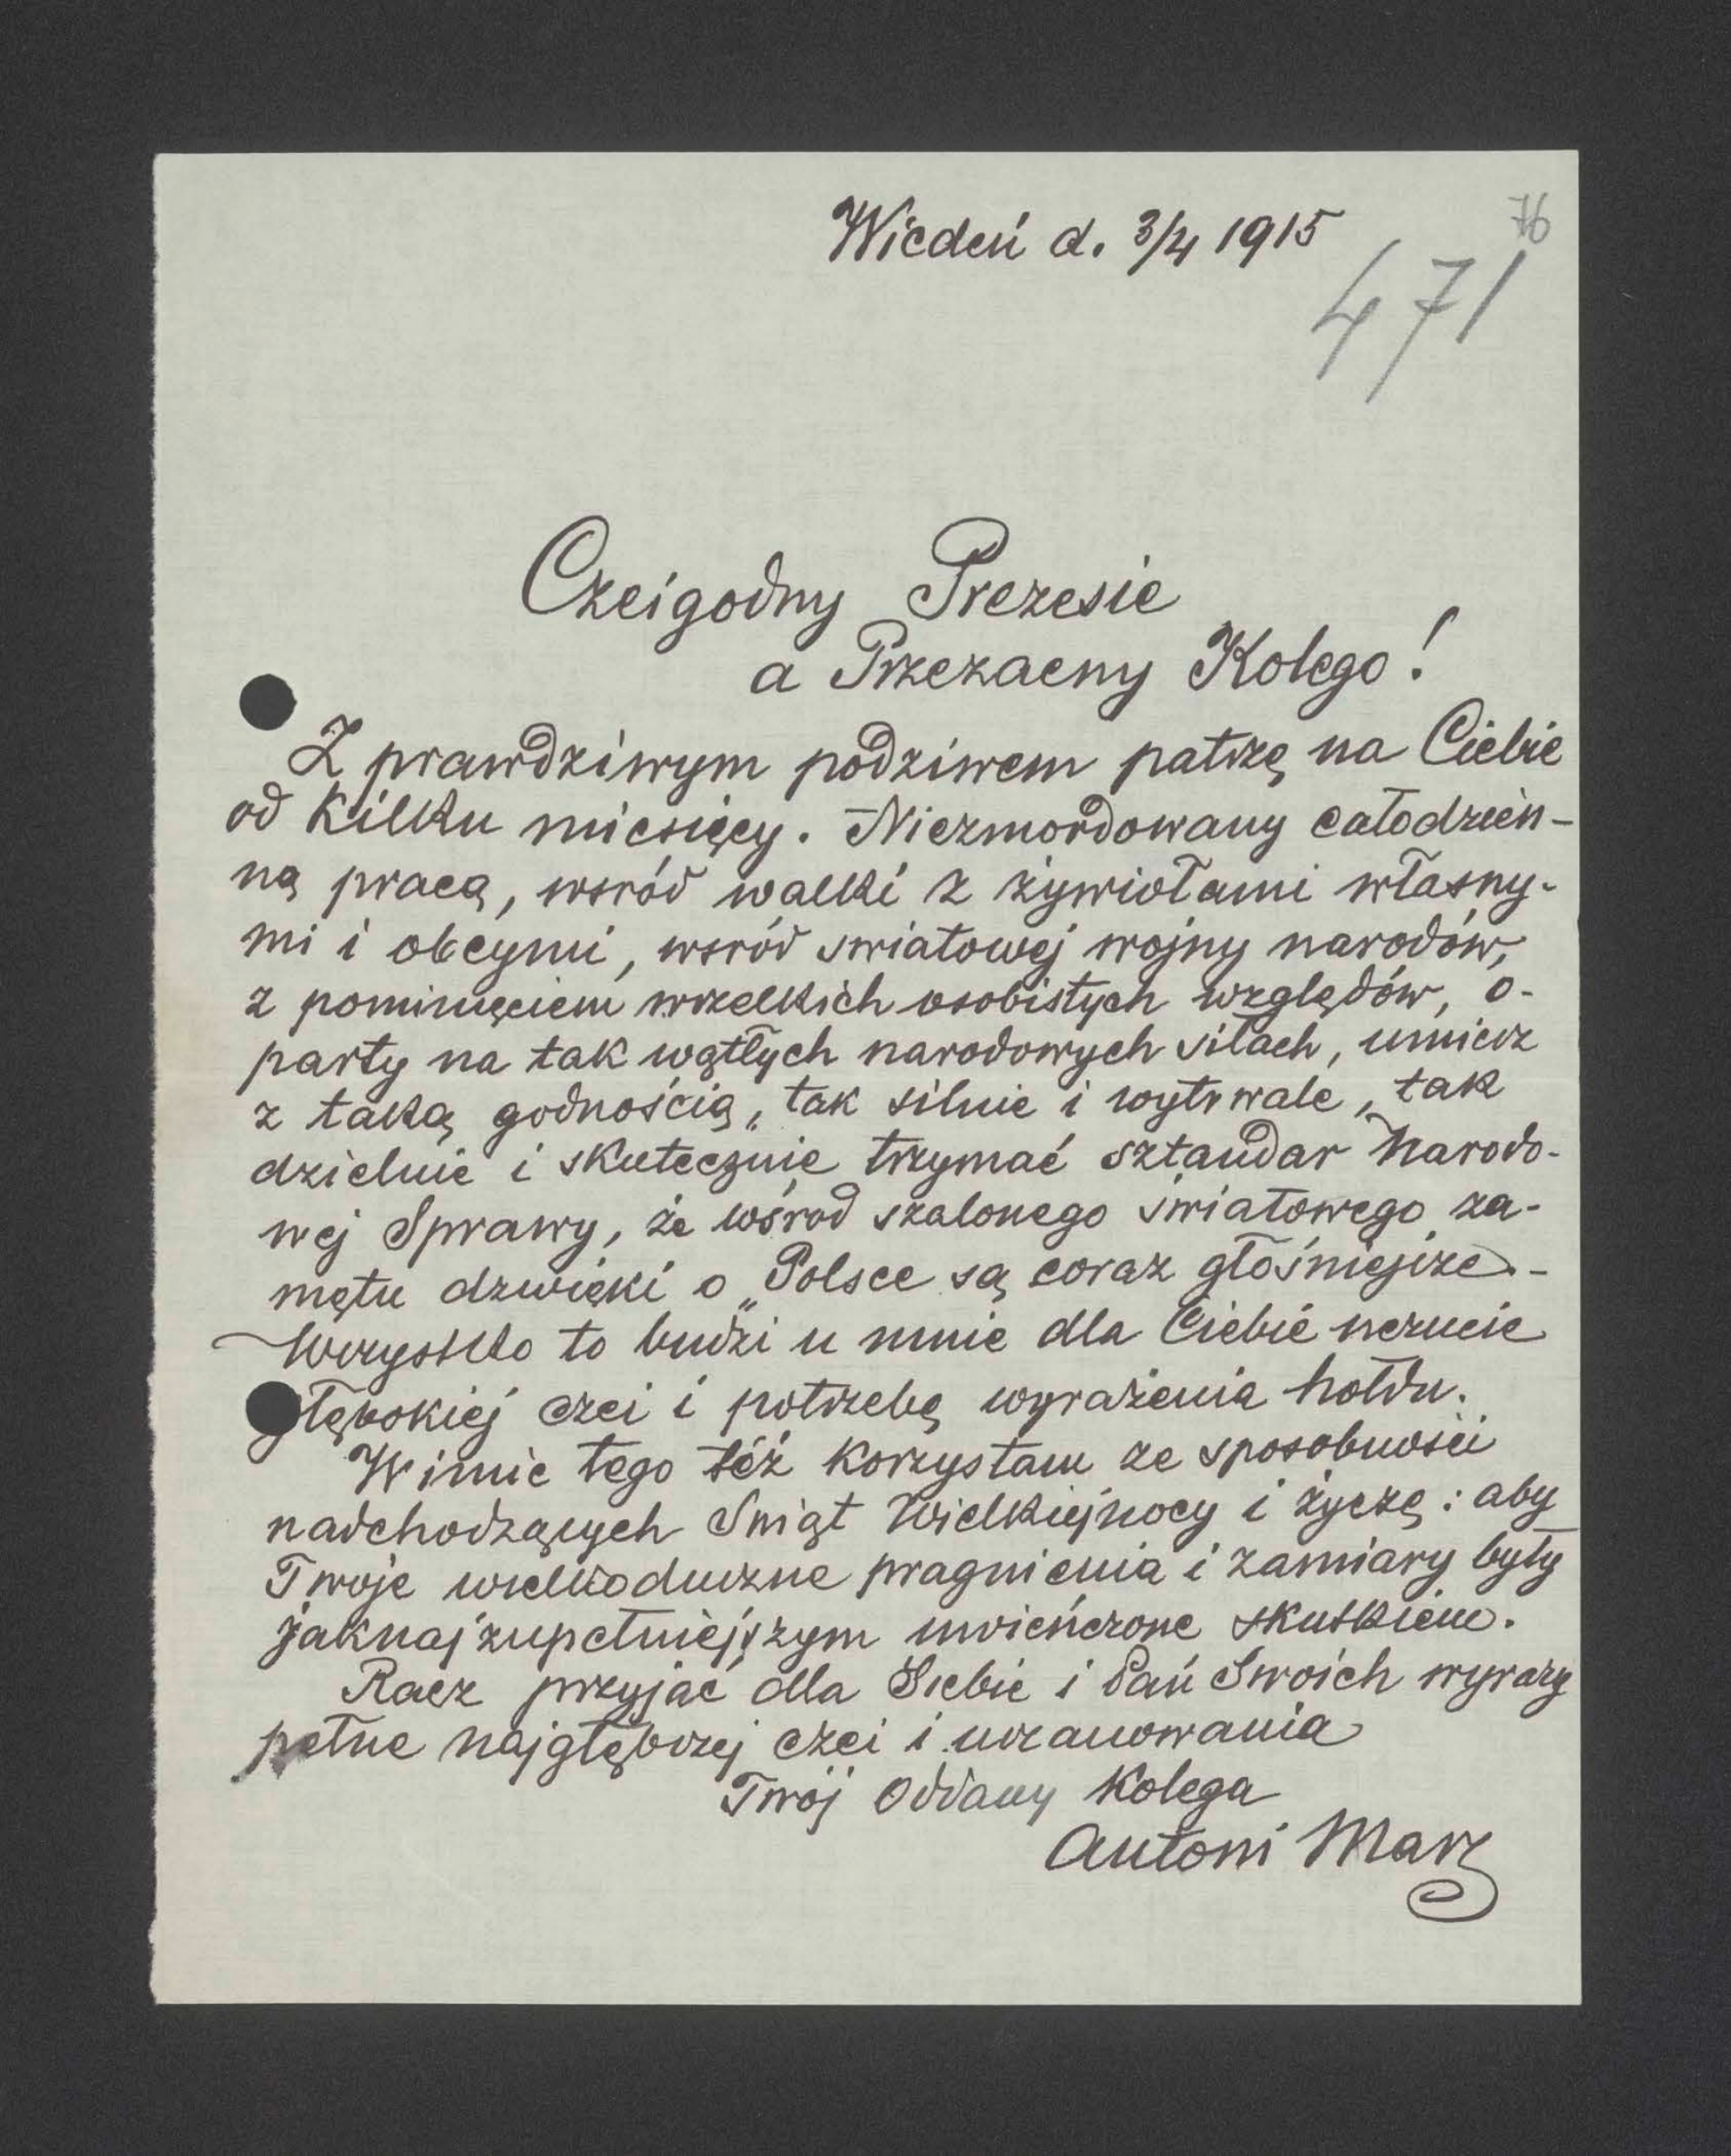 Wiedeń d. 3/4 1915
76
471
Czcigodny Prezesie
a Przezacny Kolego!
Z prawdziwym podziwem patrzę na Ciebie
od kilku miesięcy. Niezmordowany całodzien-
ną pracą, wsród walki z żywiołami własny-
mi i obcymi, wsród swiatowej wojny narodów,
z pominięciem wszelkich osobistych względów, o-
party na tak wątłych narodowych siłach, umiesz
z taką godnością, tak silnie i wytrwale, tak
dzielnie i skutecznie trzymać sztandar Narodo-
wej Sprawy, że wśród szalonego światowego za-
mętu dzwięki o „Polsce są coraz głośniejsze. -
Wszystko to budzi u mnie dla Ciebie uczucie
głębokiej czci i potrzebę wyrażenia hołdu.
W imie tego też korzystam ze sposobności
nadchodzących Swiąt Wielkiejnocy i życzę: aby
Twoje wielkoduszne pragnienia i zamiary były
jaknajzupełniejszym uwieńczone skutkiem.
Racz przyjąć dla Siebie i Pań Swoich wyrazy
pełne najgłębszej czci i uszanowania
Twój oddany Kolega
Antoni Mars